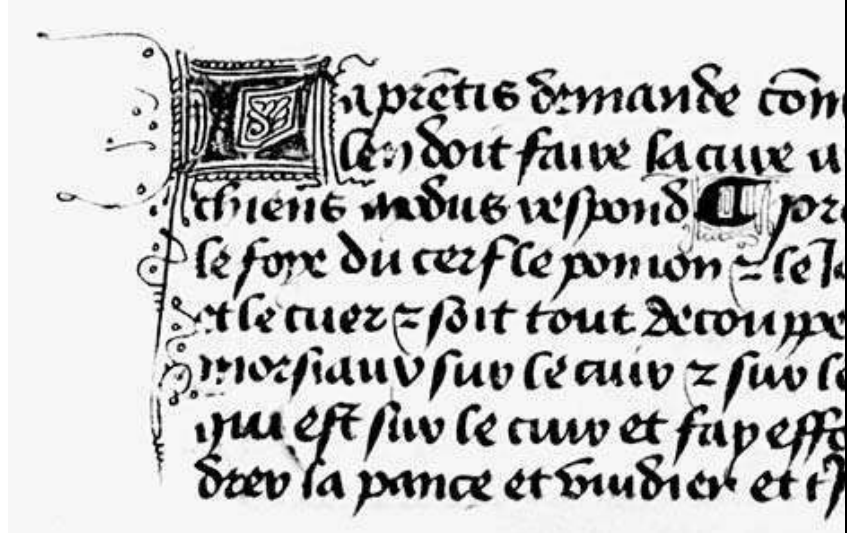 Laprẽtis demande cõm
len doit faire la cuire
chiens modus respond ¶ pre
le foye du cerf le poumon ⁊ le
et le cuer ⁊ soit tout decouppe
morsiaux sur le cuir ⁊ sur le
qui est sur le cuir et fay effo
drer la pance et vuidier et